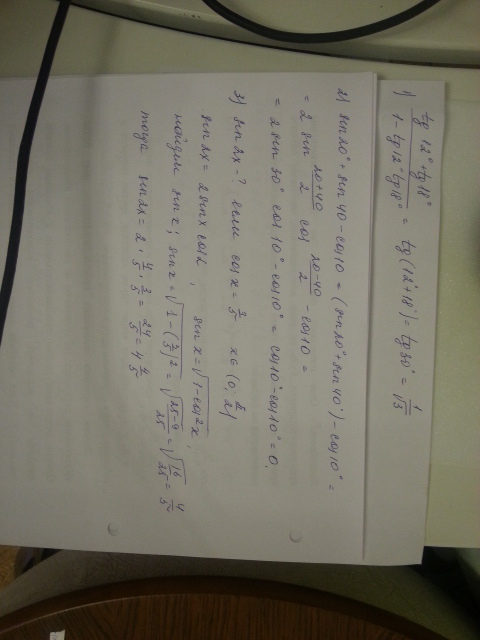 1) (tg 12° + tg 18°)/(1 - tg 12° · tg 18°) = tg (12° + 18°) = tg 30° = 1/√3
2) sin 20° + sin 40 - cos 10 = (sin 20° + sin 40°) - cos 10° =
= 2 sin (20+40)/2 cos (20-40)/2 - cos 10 =
= 2 sin 30° cos 10° - cos 10° = cos 10° - cos 10° = 0.
3) sin 2x - ? если cos x = 3/5 x ∈ (0; π/2)
sin 2x = 2 sin x cos x, sin x = √(1 - cos² x),
найдем sin x; sin x = √(1 - (3/5)²) = √((25-9)/25) = √(16/25) = 4/5
тогда sin 2x = 2 · 4/5 · 3/5 = 24/5 = 4 4/5